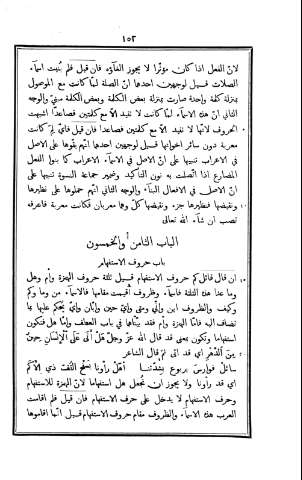 ١٥٢
لانّ الفعل اذا كان مؤثّرا لا يجوز الغآؤه فان قيل فلم بُنيت اسمآء
الصلات قيل لوجهين احدها انّ الصلة لمّا كانت مع الموصول
بمنزلة كلمة واحدة صارت بمنزلة بعض الكلمة وبعض الكلمة مبنىّ والوجه
الثانى انّ هذه الاسمآء لمّا كانت لا تفيد الّا مع كلمتين فصاعدا اشبهت
الحروف لانّها لا تفيد الّا مع كلمتين فصاعدا فان قيل فاىّ لم كانت
معربة دون سائر اخواتها قيل لوجهين احدها انّهم بقّوها على الاصل
فى الاعراب تنبيها على انّ الاصل فى الاسمآء الاعراب كما بنوا الفعل
المضارع اذا اتّصلت به نون التاكيد وضمير جماعة النسوة تنبيها على
انّ الاصل فى الافعال البنآء والوجه الثانى انّهم حملوها على نظيرها
ونقيضها فنظيرها جزء ونقيضها كلّ وهما معربان فكانت معربة فاعرفه
تصب ان شآء الله تعالى
الباب الثامن والخمسون
باب حروف الاستفهام
ان قال قائل كم حروف الاستفهام قيل ثلثة حروف الهمزة وأم وهل
وما عدا هذه الثلثة فاسمآء وظروف أقيمت مقامها فالاسمآء من وما وكم
وكيف والظروف اين وانّى ومتى واىّ حين وايّان واىّ يحكم عليها بما
تضاف اليه فامّا الهمزة وأم فقد بيّنّاها فى باب العطف وامّا هل فتكون
استفهاما وتكون بمعنى قد قال الله عزّ وجلّ هَلْ أَتَى عَلَى ٱلْإِنْسَانِ حِينٌ
مِنَ ٱلدَّهْرِ اى قد اتى ثمّ قال الشاعر
سائلْ فوارسَ يربوعٍ بشدّتنـا أهلْ رأونا بسَفْحِ القُفّ ذى الأَكَمِ
اى قد رأونا ولا يجوز ان تجعل هل استفهاما لانّ الهمزة للاستفهام
وحرف الاستفهام لا يدخل على حرف الاستفهام فان قيل فلم اقامت
العرب هذه الاسمآء والظروف مقام حروف الاستفهام قيل انّها اقاموها